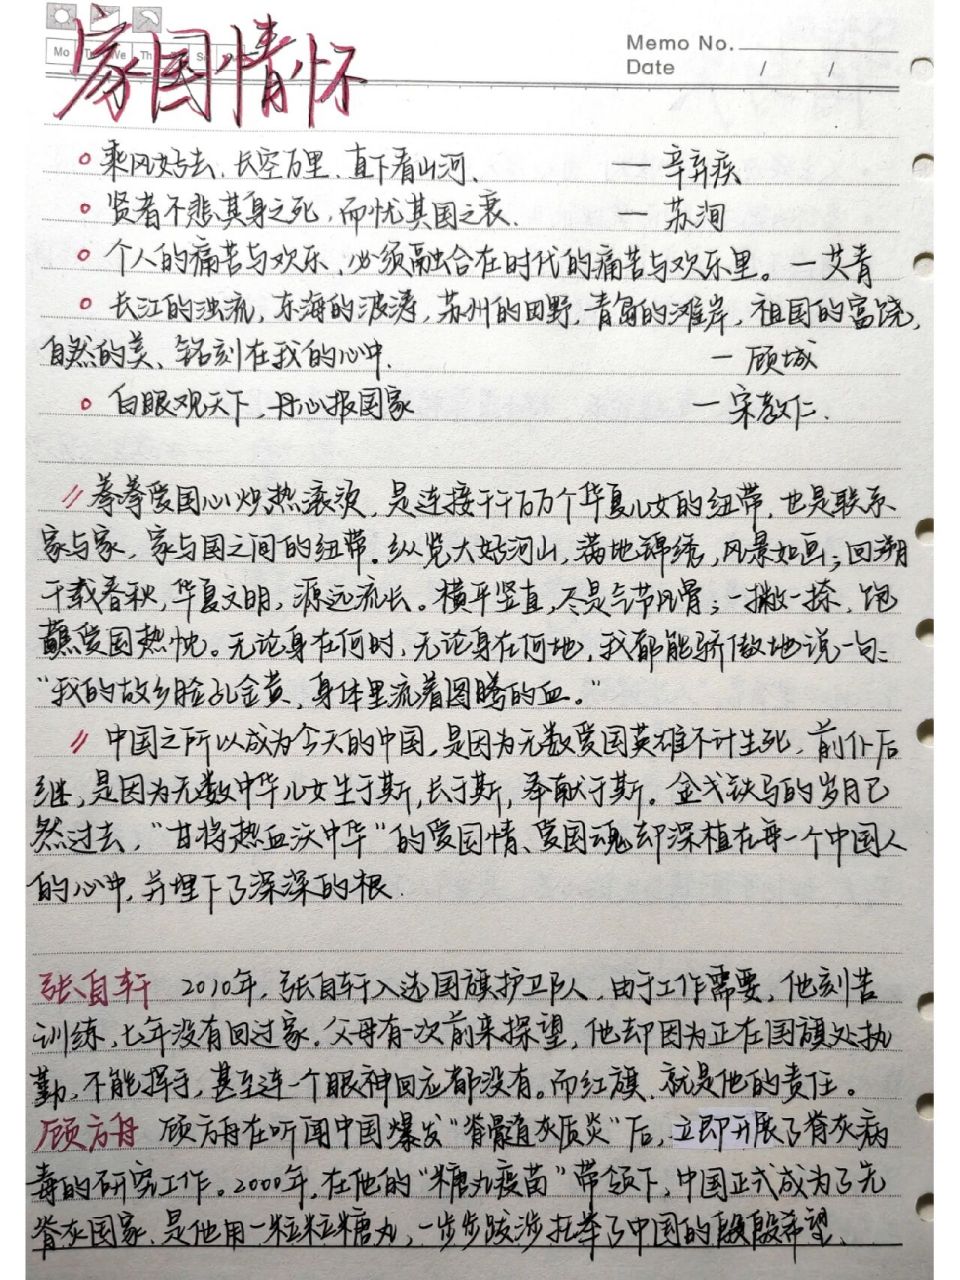 Mo We Th
Memo No.
Date / /
家国情怀
乘风好去、长空万里、直下看山河、 — 辛弃疾
贤者不悲其身之死，而忧其国之衰. — 苏洵
个人的痛苦与欢乐，必须融合在时代的痛苦与欢乐里。 — 艾青
长江的浊流，东海的波涛，苏州的田野，青岛的滩岸，祖国的富饶，
自然的美、铭刻在我的心中. — 顾城
白眼观天下，丹心报国家 — 宋教仁.
拳拳爱国心炽热滚烫，是连接千千万万个华夏儿女的纽带，也是联系
家与家，家与国之间的纽带。纵览大好河山，满地锦绣，风景如画；回溯
千载春秋，华夏文明，源远流长。横平竖直，尽是气节风骨；一撇一捺，饱
蘸爱国热忱。无论身在何时，无论身在何地，我都能骄傲地说一句：
“我的故乡脸孔金黄，身体里流着图腾的血。”
中国之所以成为今天的中国，是因为无数爱国英雄不计生死，前仆后
继，是因为无数中华儿女生于斯，长于斯，奉献于斯。金戈铁马的岁月已
然过去，“甘将热血沃中华”的爱国情、爱国魂却深植在每一个中国人
的心中，并埋下了深深的根.
张自轩 2010年，张自轩入选国旗护卫队，由于工作需要，他刻苦
训练，七年没有回过家。父母有一次前来探望，他却因为正在国旗处执
勤，不能挥手，甚至连一个眼神回应都没有。而红旗、就是他的责任。
顾方舟 顾方舟在听闻中国爆发“脊髓灰质炎”后，立即开展了脊灰病
毒的研究工作。2000年，在他的“糖丸疫苗”带领下，中国正式成为了无
脊灰国家、是他用一粒粒糖丸，一步步跋涉托举了中国的殷殷希望、